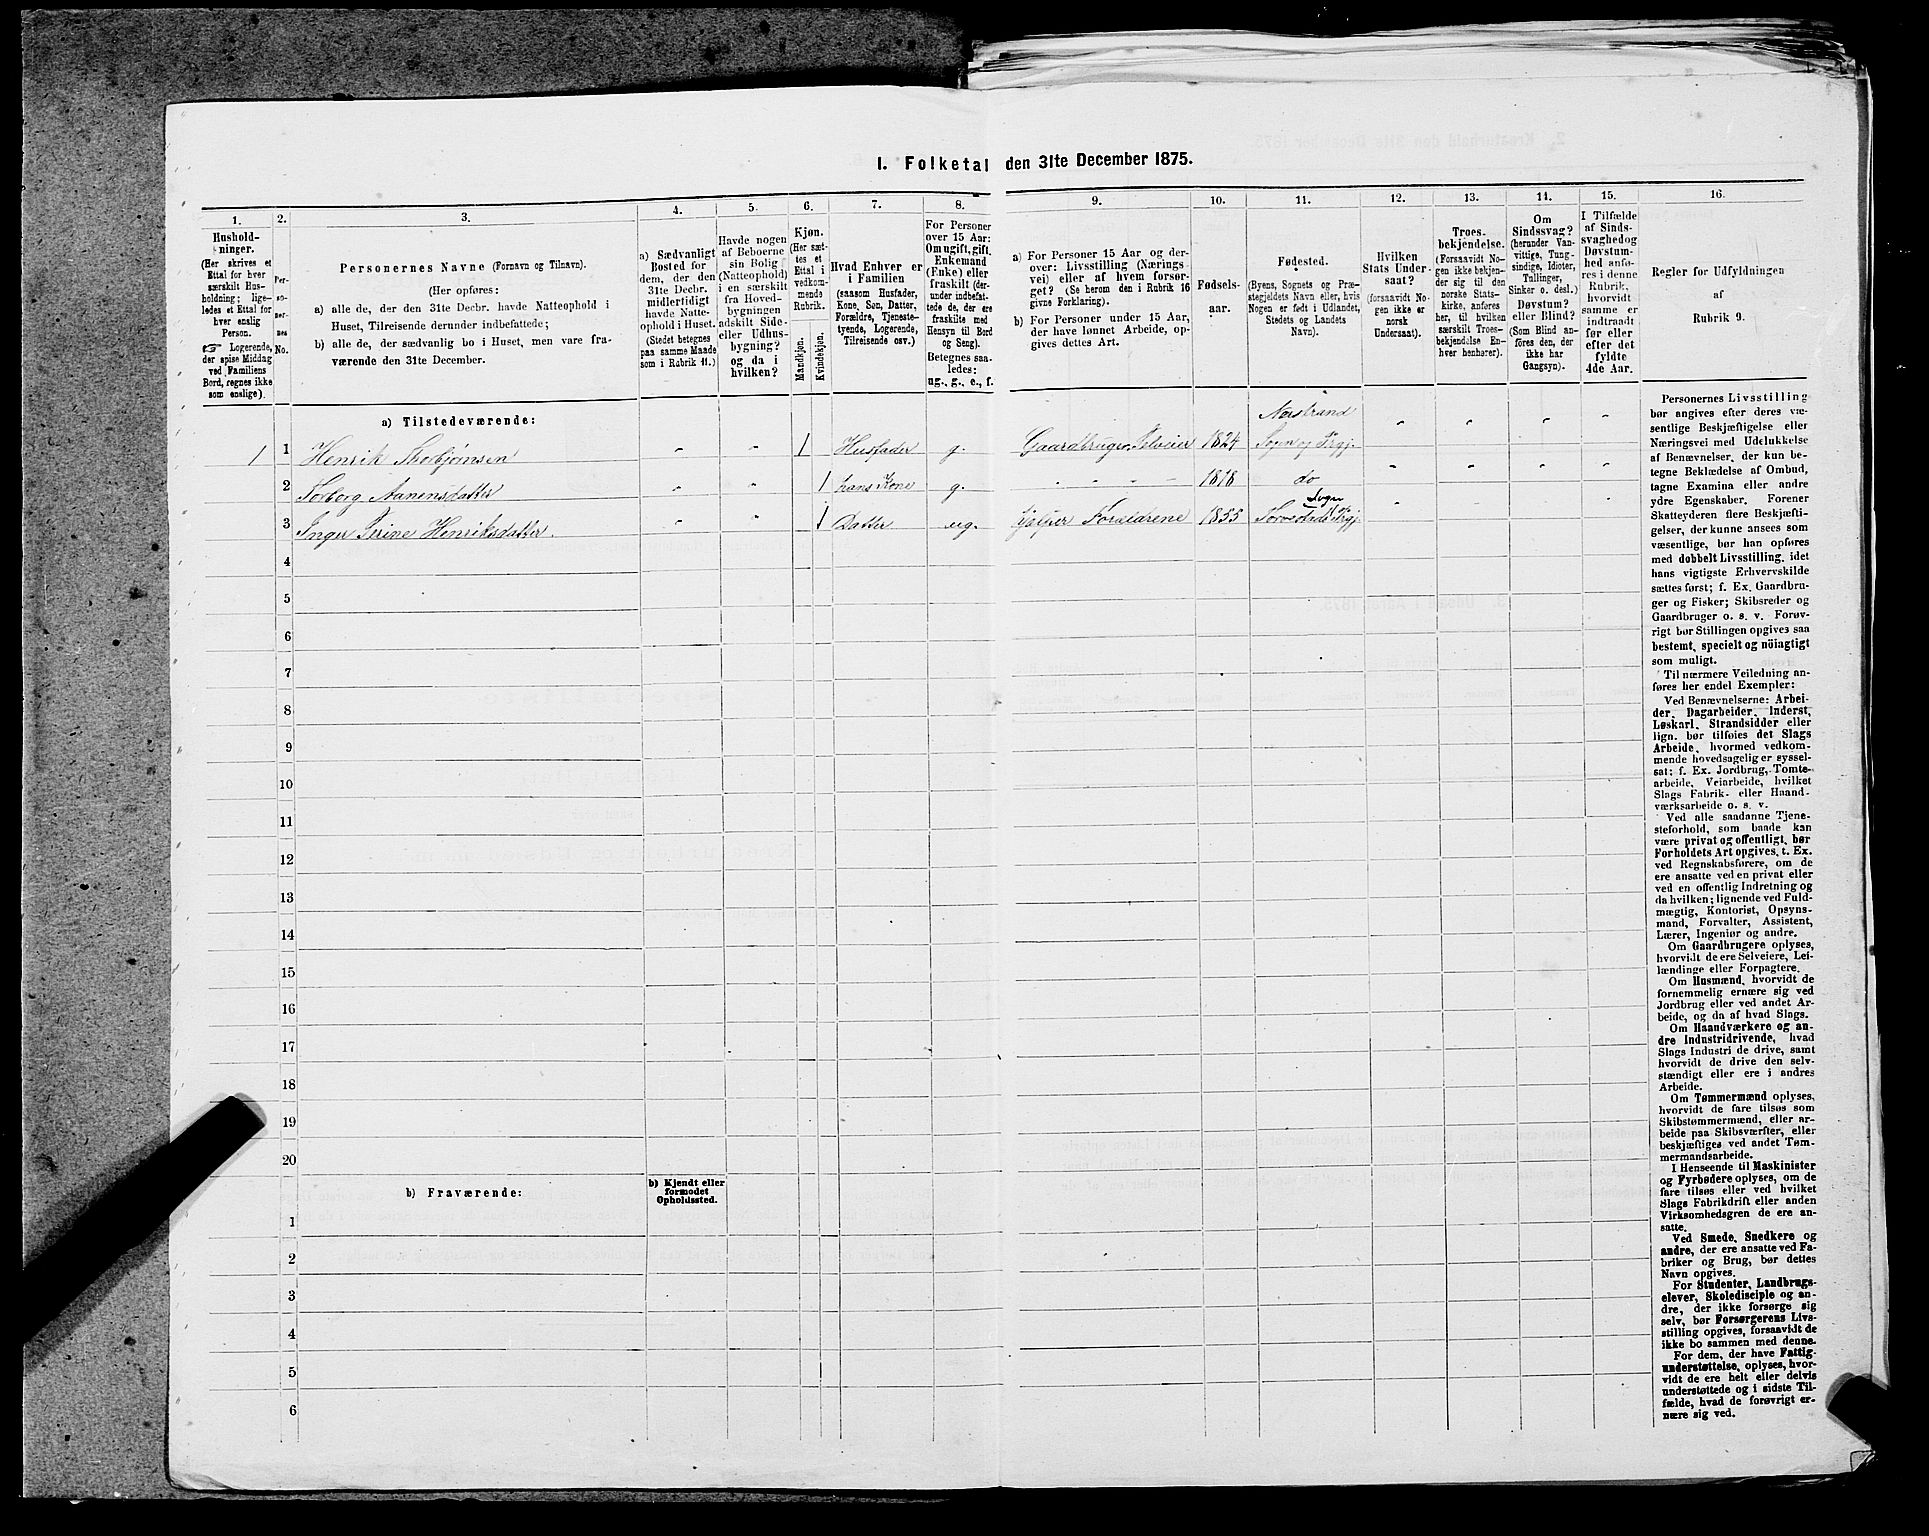 1. Folketal den 31te December 1875.
1. 2. 3. 4. 5. 6. 7. 8. 9. 10. 11. 12. 13. 14. 15. 16.
Hushold-
ninger.
(Her skrives et
Ettal for hver
særskilt Hus-
holdning; lige-
ledes et Ettal for
hver enslig
Person.
☞ Logerende,
der spise Middag
ved Familiens
Bord, regnes ikke
som enslige).
Per-
so-
ner-
nes
No.
Personernes Navne (Fornavn og Tilnavn).
(Her opføres:
a) alle de, der den 31te Decbr. havde Natteophold i
Huset, Tilreisende derunder indbefattede;
b) alle de, der sædvanlig bo i Huset, men vare fra-
værende den 31te December.
a) Sædvanligt
Bosted for
dem, der den
31te Decbr.
midlertidigt
havde Natte-
ophold i Huset.
(Stedet betegnes
paa samme Maade
som i Rubrik 11.)
Havde nogen
af Beboerne
sin Bolig
(Natteophold)
i en særskilt
fra Hoved-
bygningen
adskilt Side-
eller Udhus-
bygning?
og da i
hvilken?
Kjøn.
(Her sæt-
tes et
Ettal i
vedkom-
mende
Rubrik.
Mandkjøn.
Kvindekjøn.
Hvad Enhver er
i Familien
(saasom Husfader,
Kone, Søn, Datter,
Forældre, Tjeneste-
tyende, Logerende,
Tilreisende osv.)
For Personer
over 15 Aar:
Om ugift, gift,
Enkemand
(Enke) eller
fraskilt (der-
under indbefat-
tede de, der ere
fraskilte med
Hensyn til Bord
og Seng).
Betegnes saa-
ledes:
ug., g., e., f.
a) For Personer 15 Aar og der-
over: Livsstilling (Nærings-
vei) eller af hvem forsør-
get? (Se herom den i Rubrik 16
givne Forklaring).
b) For Personer under 15 Aar,
der have lønnet Arbeide, op-
gives dettes Art.
Fødsels-
aar.
Fødested.
(Byens, Sognets og Præ-
stegjeldets Navn eller, hvis
Nogen er født i Udlandet,
Stedets og Landets
Navn).
Hvilken
Stats Under-
saat?
(forsaavidt No-
gen ikke er
norsk
Undersaat).
Troes-
bekjendelse.
(Forsaavidt No-
gen ikke bekjen-
der sig til den
norske Stats-
kirke, anføres
her, til hvilken
særskilt Troes-
bekjendelse En-
hver henhører).
Om
Sindssvag?
(herunder Van-
vittige, Tung-
sindige, Idioter,
Tullinger,
Sinker o. desl.)
Døvstum?
eller Blind?
(Som Blind an-
føres den, der
ikke har
Gangsyn).
I Tilfælde
af Sinds-
svaghed og
Døvstum-
hed anfø-
res i denne
Rubrik,
hvorvidt
samme er
indtraadt
før eller
efter det
fyldte
4de Aar.
Regler for Udfyldningen
af
Rubrik 9.
a) Tilstedeværende:
1 1 Henrik Thorbjørnsen " " 1 Husfader g. Gaardbruger Selveier 1824 Nerstrand Sogn og Prgj. " " " "
2 Torborg Aanensdatter " " 1 hans Kone g. " " " – 1818 do " " " "
3 Inger Serine Henriksdatter. " " 1 Datter ug. hjelper Forældrene 1855 Torvestads Sogn Prgj. " " " "
4
5
6
7
8
9
10
11
12
13
14
15
16
17
18
19
20
b) Fraværende:
b) Kjendt eller
formodet
Opholdssted.
1
2
3
4
5
6
Personernes Livsstilling
bør angives efter deres væ-
sentlige Beskjæftigelse eller
Næringsvei med Udelukkelse
af Benævnelser, der kun be-
tegne Beklædelse af Ombud,
tagne Examina eller andre
ydre Egenskaber. Forener
Skatteyderen flere Beskjæfti-
gelser, der kunne ansees som
væsentlige, bør han opføres
med dobbelt Livsstilling, idet
hans vigtigste Erhvervskilde
sættes først; f. Ex. Gaardbru-
ger og Fisker; Skibsreder og
Gaardbruger o. s. v. Forøv-
rigt bør Stillingen opgives saa
bestemt, specielt og nöiagtigt
som muligt.
Til nærmere Veiledning an-
føres her endel Exempler:
Ved Benævnelserne: Arbei-
der, Dagarbeider, Inderst,
Løskarl, Strandsidder eller
lign. bør tilføies det Slags
Arbeide, hvormed vedkom-
mende hovedsagelig er syssel-
sat; f. Ex. Jordbrug, Tomte-
arbeide, Veiarbeide, hvilket
Slags Fabrik- eller Haand-
værksarbeide o. s. v.
Ved alle saadanne Tjene-
steforhold, som baade kan
være privat og offentligt, bør
Forholdets Art opgives, t. Ex.
ved Regnskabsførere, om de
ere ansatte ved en privat eller
ved en offentlig Indretning og
da hvilken; lignende ved Fuld-
mægtig, Kontorist, Opsyns-
mand, Forvalter, Assistent,
Lærer, Ingeniør og andre.
Om Gaardbrugere oplyses,
hvorvidt de ere Selveiere, Lei-
lændinge eller Forpagtere.
Om Husmænd, hvorvidt de
fornemmelig ernære sig ved
Jordbrug eller ved andet Ar-
beide, og da af hvad Slags.
Om Haandværkere og an-
dre Industridrivende, hvad
Slags Industri de drive, samt
hvorvidt de drive den selv-
stændigt eller ere i andres
Arbeide.
Om Tømmermænd oplyses,
hvorvidt de fare tilsøs som
Skibstømmermænd, eller ar-
beide paa Skibsværfter, eller
beskjæftiges ved andet Tøm-
mermandsarbeide.
I Henseende til Maskinister
og Fyrbødere oplyses, om de
fare tilsøs eller ved hvilket
Slags Fabrikdrift eller anden
Virksomhedsgren de ere an-
satte.
Ved Smede, Snedkere og
andre, der ere ansatte ved Fa-
briker og Brug, bør dettes
Navn opgives.
For Studenter, Landbrugs-
elever, Skoledisciple og an-
dre, der ikke forsørge sig
selv, bør Forsørgerens Livs-
stilling opgives, forsaavidt de
ikke bo sammen med denne.
For dem, der have Fattig-
understøttelse, oplyses, hvor-
vidt de ere helt eller delvis
understøttede og i sidste Til-
fælde, hvad de forøvrigt er-
nære sig ved.